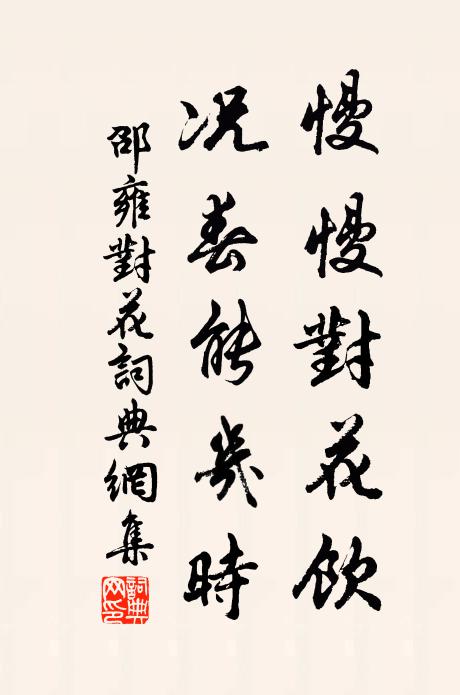 慢慢對花飲
況春能幾時
邵雍對花詞典網集
詞典网印